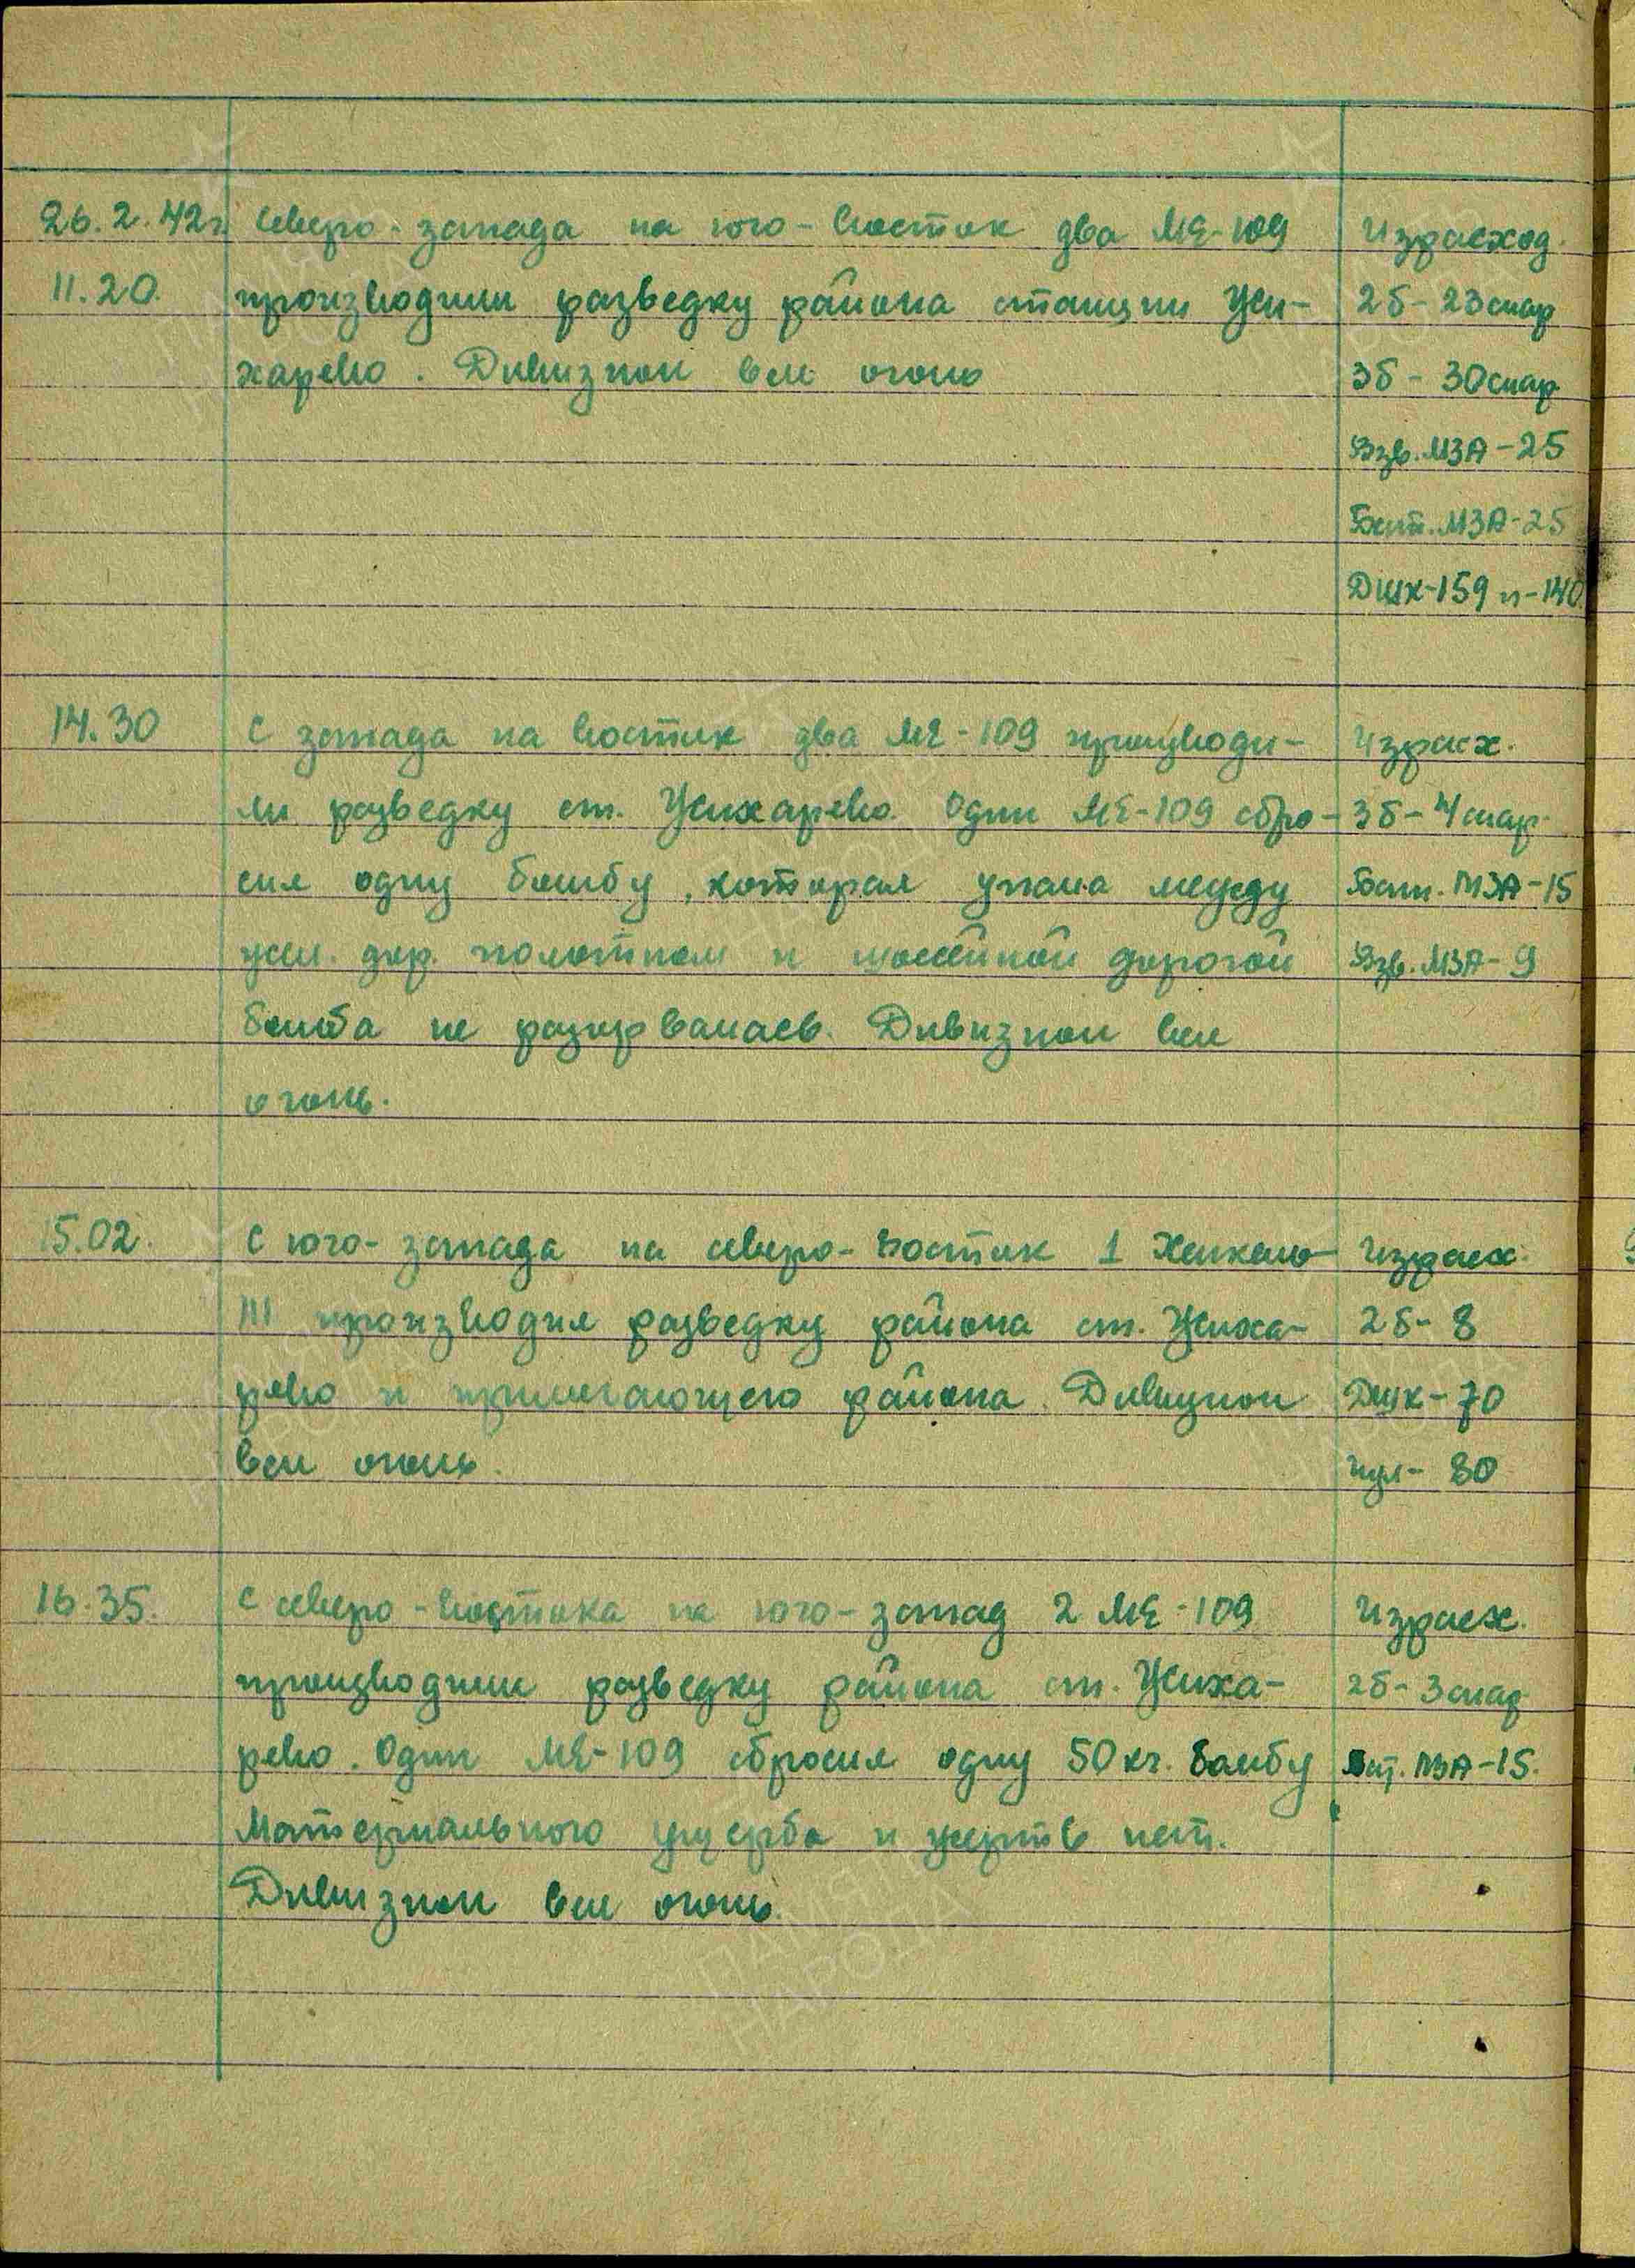 26.2.42г. Северо-запада на юго-восток два МЕ-109 Израсход.
11.20. производили разведку района станции Жи- 2б - 23 снар
харево. Дивизион вел огонь 3б - 30 снар
Взв. МЗА - 25
Бат. МЗА - 25
ДШК-159 п-140
14.30 С запада на восток два МЕ-109 производи- Израсх.
ли разведку ст. Жихарево. Один МЕ-109 сбро- 3б - 4 снар.
сил одну бомбу, которая упала между Бат. МЗА - 15
жел. дор. полотном и шоссейной дорогой Взв. МЗА - 9
бомба не разорвалась. Дивизион вел
огонь.
15.02. С юго-запада на северо-восток 1 Хенкель- Израсх.
111 производил разведку района ст. Жиха- 2б - 8
рево и прилегающего района. Дивизион ДШК - 70
вел огонь. пул - 80
16.35. С северо-востока на юго-запад 2 МЕ-109 Израсх.
производили разведку района ст. Жиха- 2б - 3 снар
рево. Один МЕ-109 сбросил одну 50 кг. бомбу Бат. МЗА - 15.
Материального ущерба и жертв нет.
Дивизион вел огонь.
ПАМЯТЬ
НАРОДА